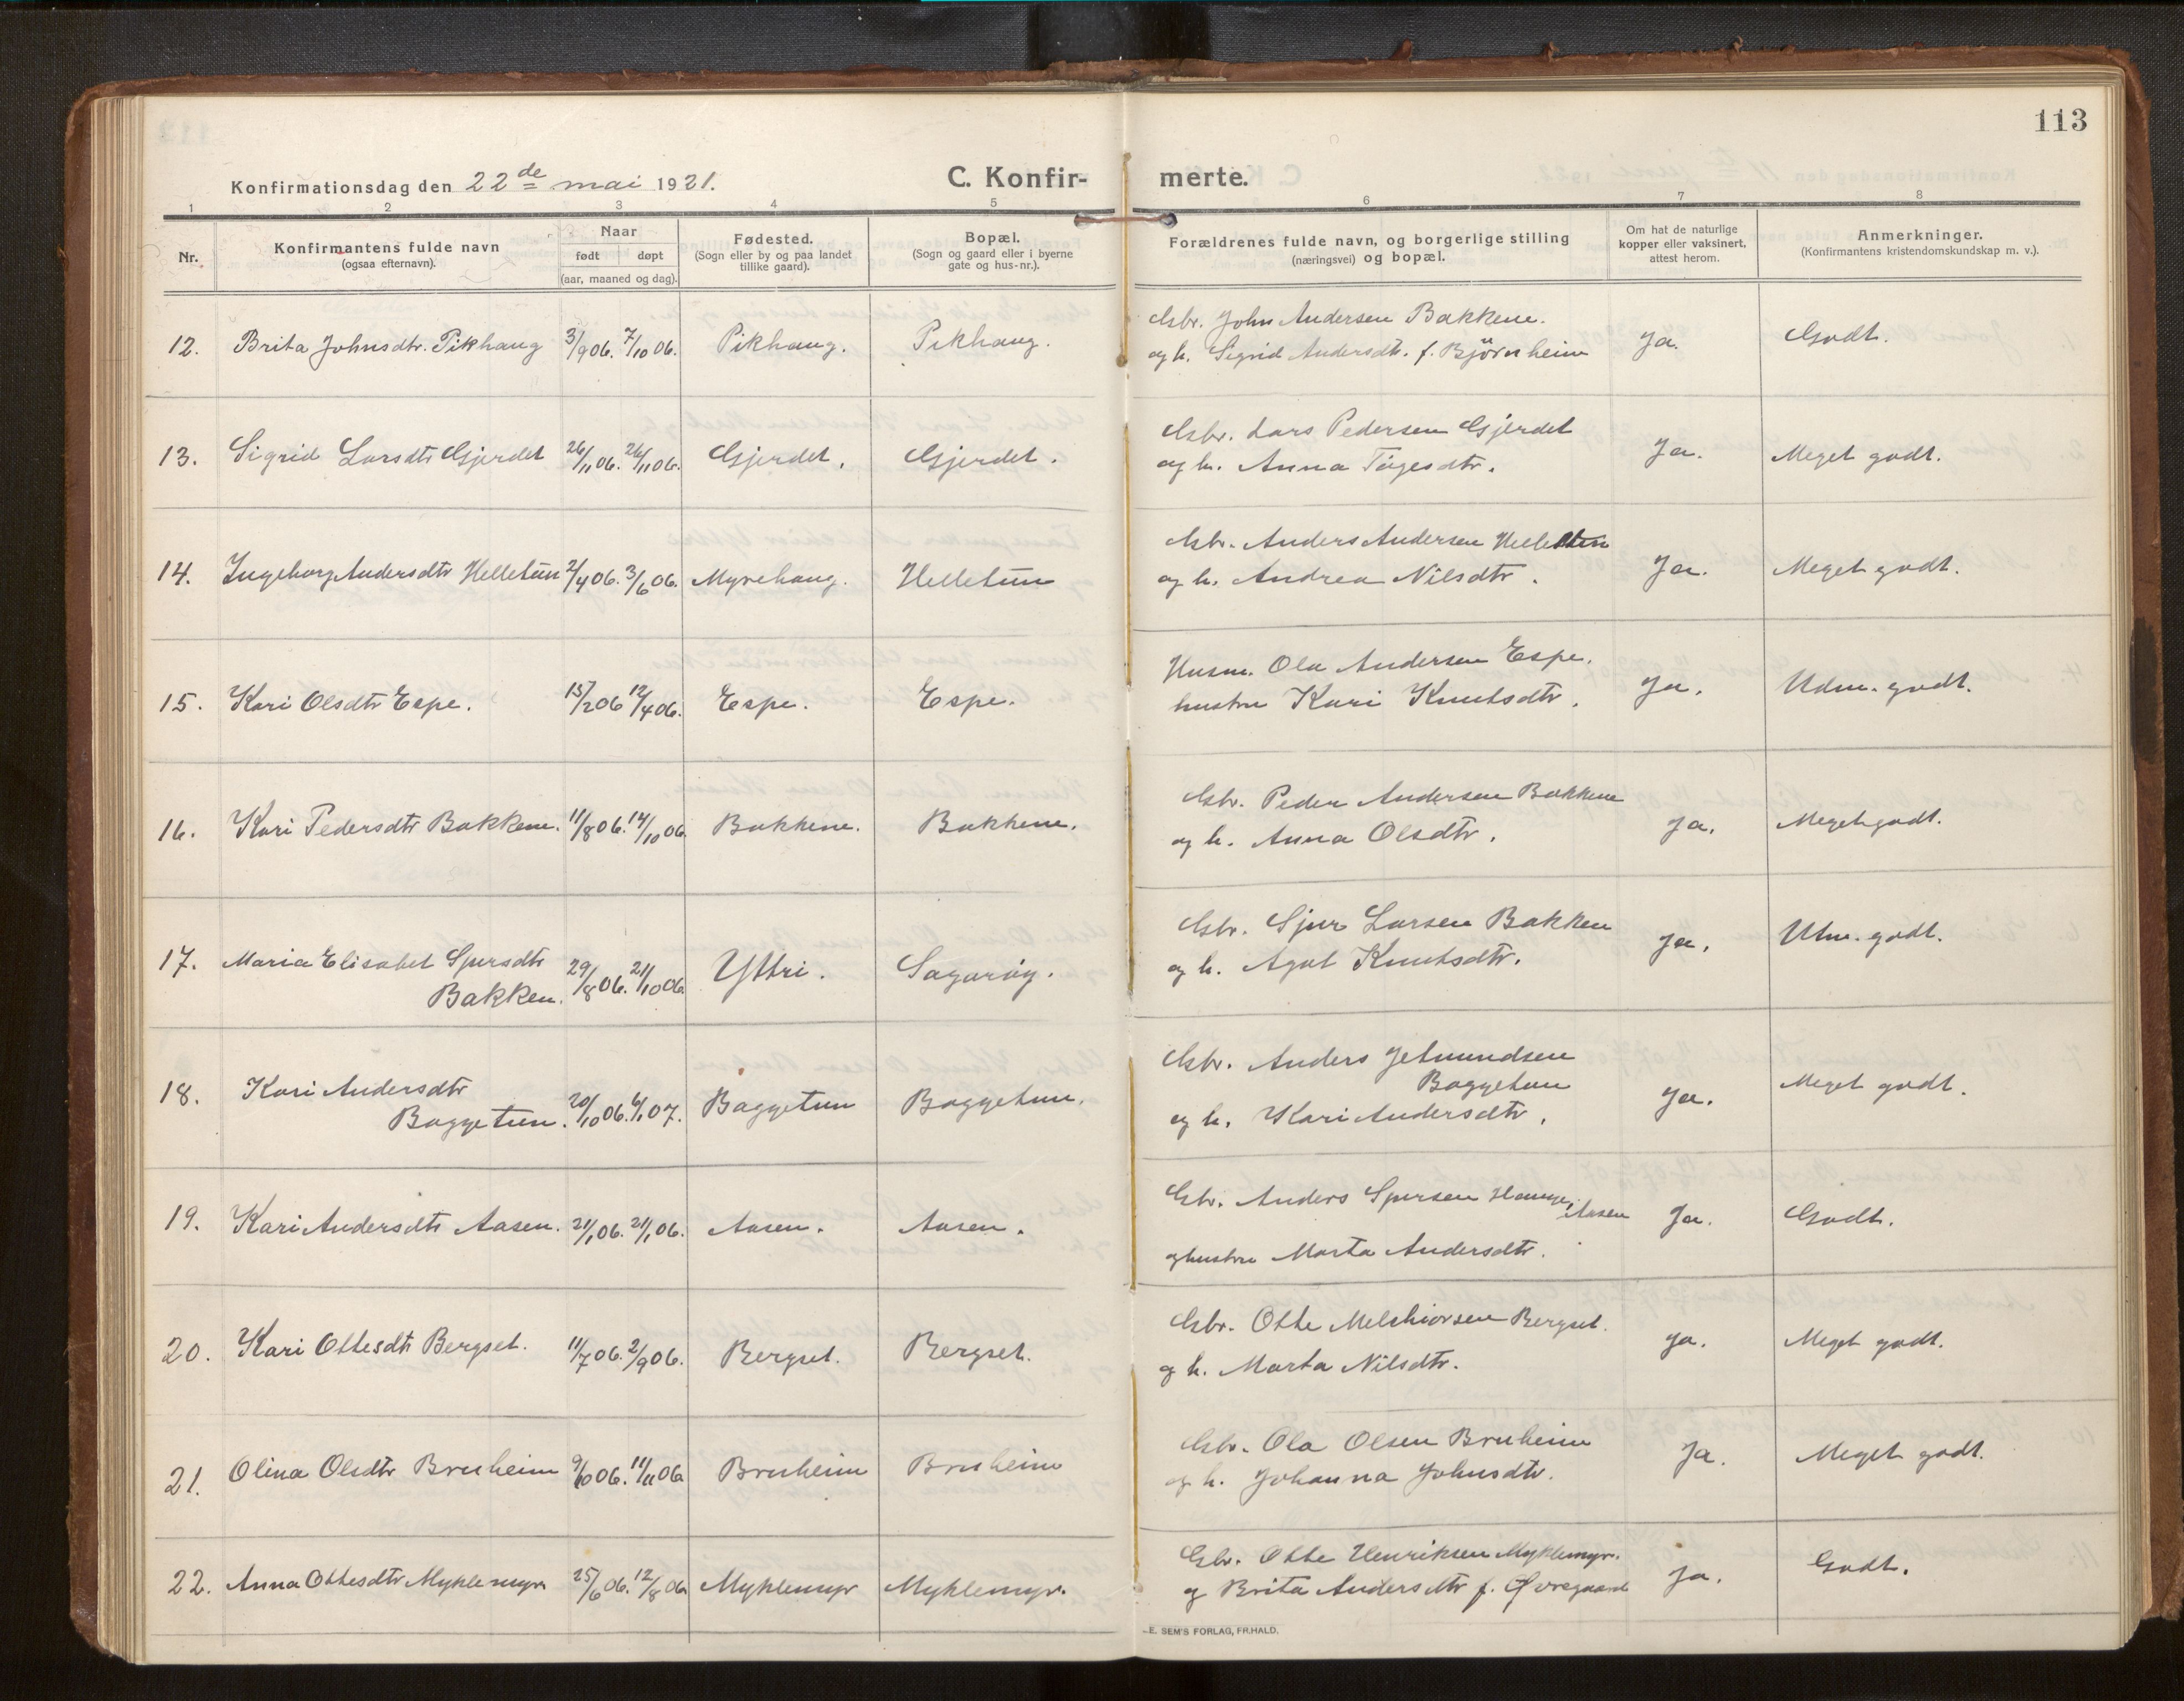 113
Konfirmationsdag den 22de mai 1921. C. Konfir- merte.
1 2 3 4 5 6 7 8
Nr.
Konfirmantens fulde navn
(ogsaa efternavn).
Naar
født døpt
(aar, maaned og dag).
Fødested.
(Sogn eller by og paa landet
tillike gaard).
Bopæl.
(Sogn og gaard eller i byerne
gate og hus-nr.).
Forældrenes fulde navn, og borgerlige stilling
(næringsvei) og bopæl.
Om hat de naturlige
kopper eller vaksinert,
attest herom.
Anmerkninger.
(Konfirmantens kristendomskundskap m. v.).
12. Brita Johnsdtr. Pikhaug 3/9 06. 7/10 06. Pikhaug. Pikhaug.
Gbr. John Andersen Bakkene.
og h. Sigrid Andersdtr. f. Bjørnheim
Ja. Godt.
13. Sigrid Larsdtr Gjerdet 26/11 06. 26/11 06. Gjerdet. Gjerdet.
Gbr. Lars Pedersen Gjerdet
og h. Anna Tøgesdtr.
Ja. Meget godt.
14. Ingeborg Andersdtr Helletun 2/4 06. 3/6 06. Myrehaug. Helletun
Gbr. Anders Andersen Helletun
og h. Andrea Nilsdtr.
Ja. Meget godt.
15. Kari Olsdtr Espe. 15/2 06 12/4 06. Espe. Espe.
Husm. Ola Andersen Espe.
hustru Kari Knutsdtr.
Ja. Udm. godt.
16. Kari Pedersdtr Bakkene. 11/8 06. 14/10 06. Bakkene. Bakkene.
Gbr. Peder Andersen Bakkene
og h. Anna Olsdtr.
Ja. Meget godt.
17. Maria Elisabet Sjursdtr
Bakken. 29/8 06. 21/10 06. Yttri. Sagarøy.
Gbr. Sjur Larsen Bakken
og h. Agot Knutsdtr.
Ja. Utm. godt.
18. Kari Andersdtr
Baggetun. 20/10 06. 6/1 07. Baggetun Baggetun.
Gbr. Anders Jetmundsen
Baggetun
og h. Kari Andersdtr.
Ja. Meget godt.
19. Kari Andersdtr Aasen. 21/1 06. 21/1 06. Aasen. Aasen.
Gbr. Anders Sjursen Aasen
og hustru Marta Andersdtr.
Ja. Godt.
20. Kari Ottesdtr Bergset. 11/7 06. 2/9 06. Bergset. Bergset.
Gbr. Otte Melchiorsen Bergset.
og h. Marta Nilsdtr.
Ja. Meget godt.
21. Olina Olsdtr Bruheim 9/10 06. 11/11 06 Bruheim Bruheim
Gbr. Ola Olsen Bruheim
og h. Johanna Johnsdtr.
Ja. Meget godt.
22. Anna Ottesdtr Myklemyr 25/6 06. 12/8 06 Myklemyr Myklemyr.
Gbr. Otte Henriksen Myklemyr.
og Brita Andersdtr f. Øvregaard
Ja. Godt.
E. SEM'S FORLAG, FR.HALD.